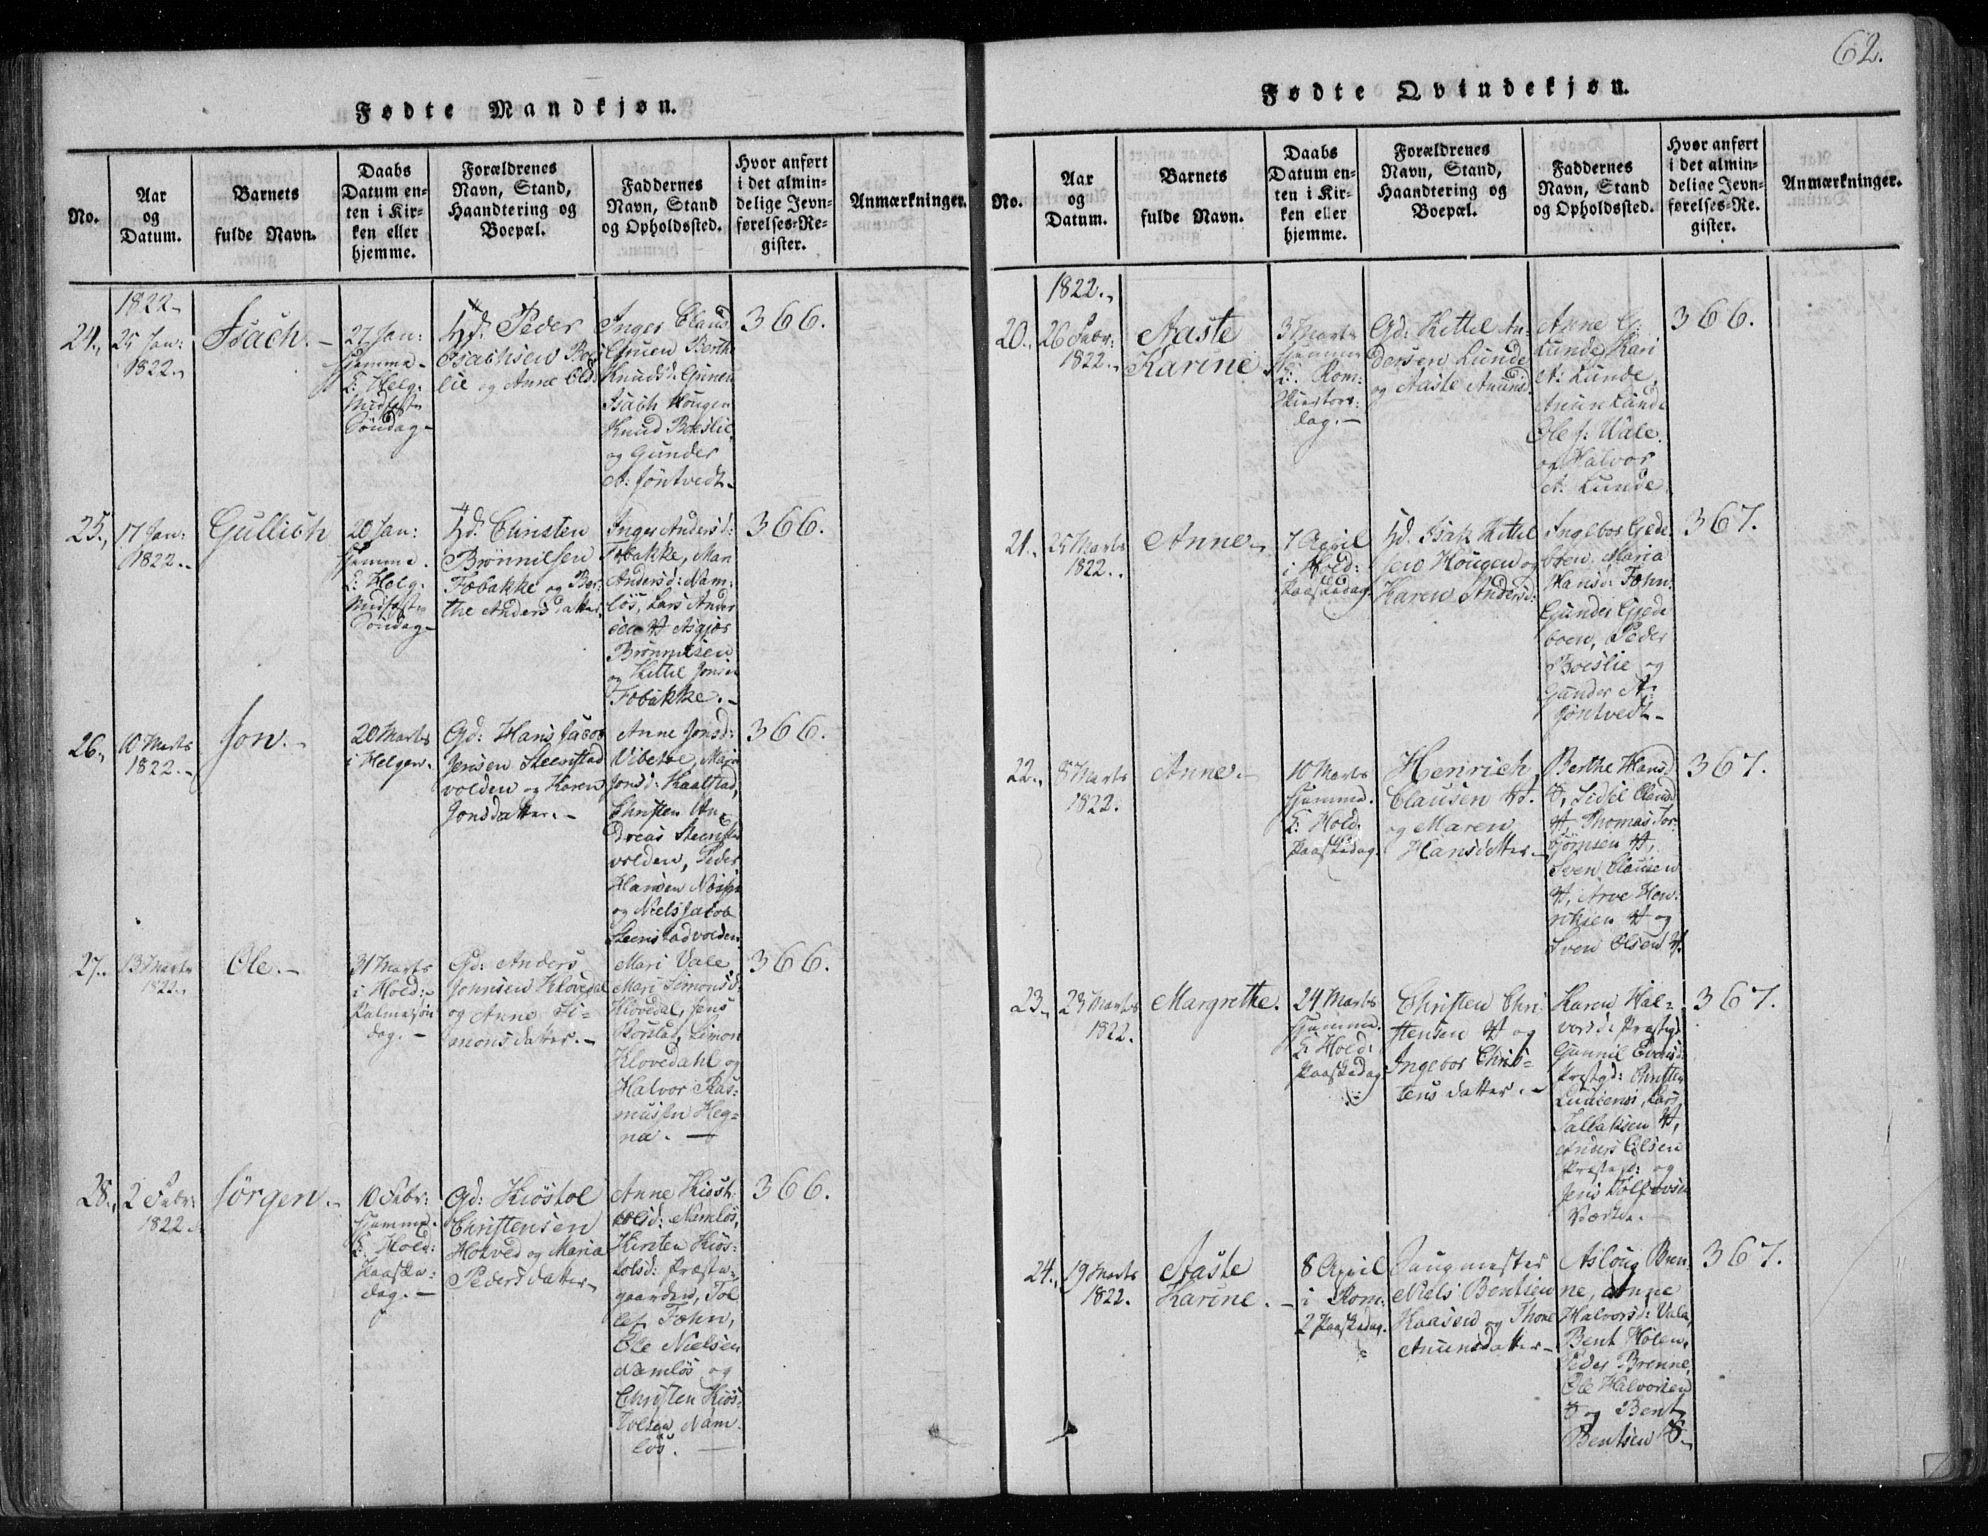 62.
Fødte Mandkjøn.
No.
Aar
og
Datum.
Barnets
fulde Navn.
Daabs
Datum en-
ten i Kir-
ken eller
hjemme.
Forældrenes
Navn, Stand,
Haandtering og
Boepæl.
Faddernes
Navn, Stand
og Opholdssted.
Hvor anført
i det almin-
delige Jevn-
førelses-Re-
gister.
Anmærkninger.
1822.
24.
25 Jan:
1822.
Isach.
27 Jan:
hjemme
Midfaste
Söndag
Hd. Peder
Isachsen Boe
lie og Anne Old
Inger Claus
Berthe
Knudsd: Gunen
Isach Hougen
Knud Boeslie
og Gunder
A: Jöntvedt
366.
25.
17 Jan:
1822.
Gullich
20 Jan:
hjemme.
Midfaste
Söndag
Hd. Christen
Brönnilsen
Fobakke og Ber
the Andersdatter
Inger Andersd:
Fobakke, Mari
Andersd: Nam-
lös, Lars Ander
sen Asgier
Brönnilsen
og Kittil Jonsen
Fobakke.
366.
26.
10 Marts
1822.
Jon.
20 Marts
i Helgen.
Gd: Hans Jacob
Jensen Steenstad
volden og Karen
Jonsdatter.
Anne Jonsd:
Vibetoe, Mari
Jonsd: Kaalstad,
Christen An-
dreas Steenstad
volden, Peder
Hansen
og Niels Jacob
Steenstadvolden
366.
27.
13 Marts
1822.
Ole.
31 Marts
i Hold:
Palmesön
dag.
Gd: Anders
Johnsen Klovedal
og Anne Si-
monsdatter.
Mari Vale
Mari Simonsd:
Klovedal, Jens
Simon
Klovedahl og
Halvor Ras-
mussen Heg-
na.
366.
28.
2 Febr:
1822.
Jörgen.
10 Febr:
hjemme.
E: Hold:
Paaske-
dag.
Gd: Kiöstol
Christensen
Holtved og Maria
Pedersdatter
Anne Kiöst
olsd: Namlös,
Kirsten Kiös-
tolsd: Præste-
gaarden, Tol
lef Fohn,
Ole Nielsen
Namlös og
Christen Kiös-
tolsen Nam-
lös.
366.
Fødte Qvindekjøn.
No.
Aar
og
Datum.
Barnets
fulde Navn.
Daabs
Datum en-
ten i Kir-
ken eller
hjemme.
Forældrenes
Navn, Stand,
Haandtering og
Boepæl.
Faddernes
Navn, Stand
og Opholdssted.
Hvor anført
i det almin-
delige Jevn-
førelses-Re-
gister.
Anmærkninger.
1822.
20.
26 Febr:
1822.
Aaste
Karine.
3 Marts
hjemme
E: Rom:
Skiertors-
dag.
Gd: Kittil An
dersen Lunde
og Aaste Anunsd
Anne G:
Lunde, Kari
A: Lunde,
Anun Lunde
Ole J: Vale
og Halvor
A: Lunde
366.
21.
25 Marts
1822.
Anne
7 April
i Hold:
Paaskedag
Hd. Isak Kittil
sen Hougen og
Karen Andersd:
Ingebor Gede
boen, Maria
Hansd: Fohn.
Gunder Gjede
boen, Peder
Boeslie og
Gunder A:
Jöntvedt
367.
22.
8 Marts
1822.
Anne.
10 Marts
hjemme.
E: Hold:
Paaskedag
Henrich
Clausen H.
og Maren
Hansdatter
Berthe Hansd
H, Sidsel Clausd
H, Thomas Tor
björnsen H,
Sven Clausen
H, Arve Hen-
richsen H og
Sven Olsen H.
367.
23.
23 Marts
1822.
Margrethe.
24 Marts
hjemme.
E: Hold:
Paaskedag
Christen Chri
stensen H og
Ingebor Chris-
tensdatter.
Karen Hal-
vorsd: Præstgd
Gunnil Evensd:
Præstgd: Christen
Lars
H,
Anders Olsen
og
Jens
367.
24.
19 Marts
1822.
Aaste
Karine.
8 April
i Rom:
2 Paaskedag.
Saugmester
Niels Bentsen
Haasen og Thone
Anunsdatter
Asloug Bren
ne, Anne
Halvorsd: Vala,
Bent Holen,
Peder Brenne,
Ole Halvorsen
og Bent
Bentsen
367.